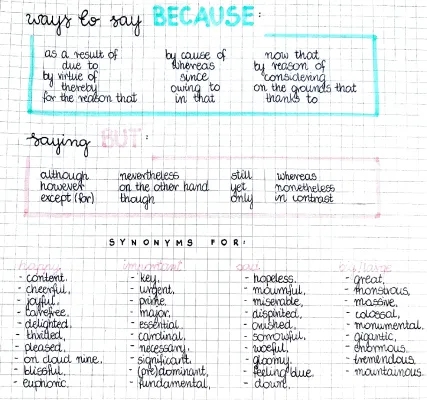 ways to say BECAUSE:
as a result of
due to
by virtue of
thereby
for the reason that
by cause of
whereas
since
owing to
in that
now that
by reason of
considering
on the gounds that
thanks to
saying BUT:
although
however
except (for)
nevertheless
on the other hand
though
still
yet
only
whereas
nonetheless
in contrast
SYNONYMS FOR:
happy
- content.
- cheerful,
- joyful,
- carefree.
- delighted.
- thrilled,
- pleased.
- on cloud nine.
- blissful,
- euphoric.
important
- key,
- urgent,
- prime,
- major,
- essential,
- cardinal,
- necessary,
- significant,
- (pre)dominant,
- fundamental,
sad
- hopeless,
- mournful,
- miserable,
- dispirited,
- crushed,
- sorrowful,
- woeful,
- gloomy,
- feeling blue
- down,
big/large
- great,
- monstrous,
- massive,
- colossal,
- monumental.
- gigantic,
- enormous.
- tremendous
- mountainous.